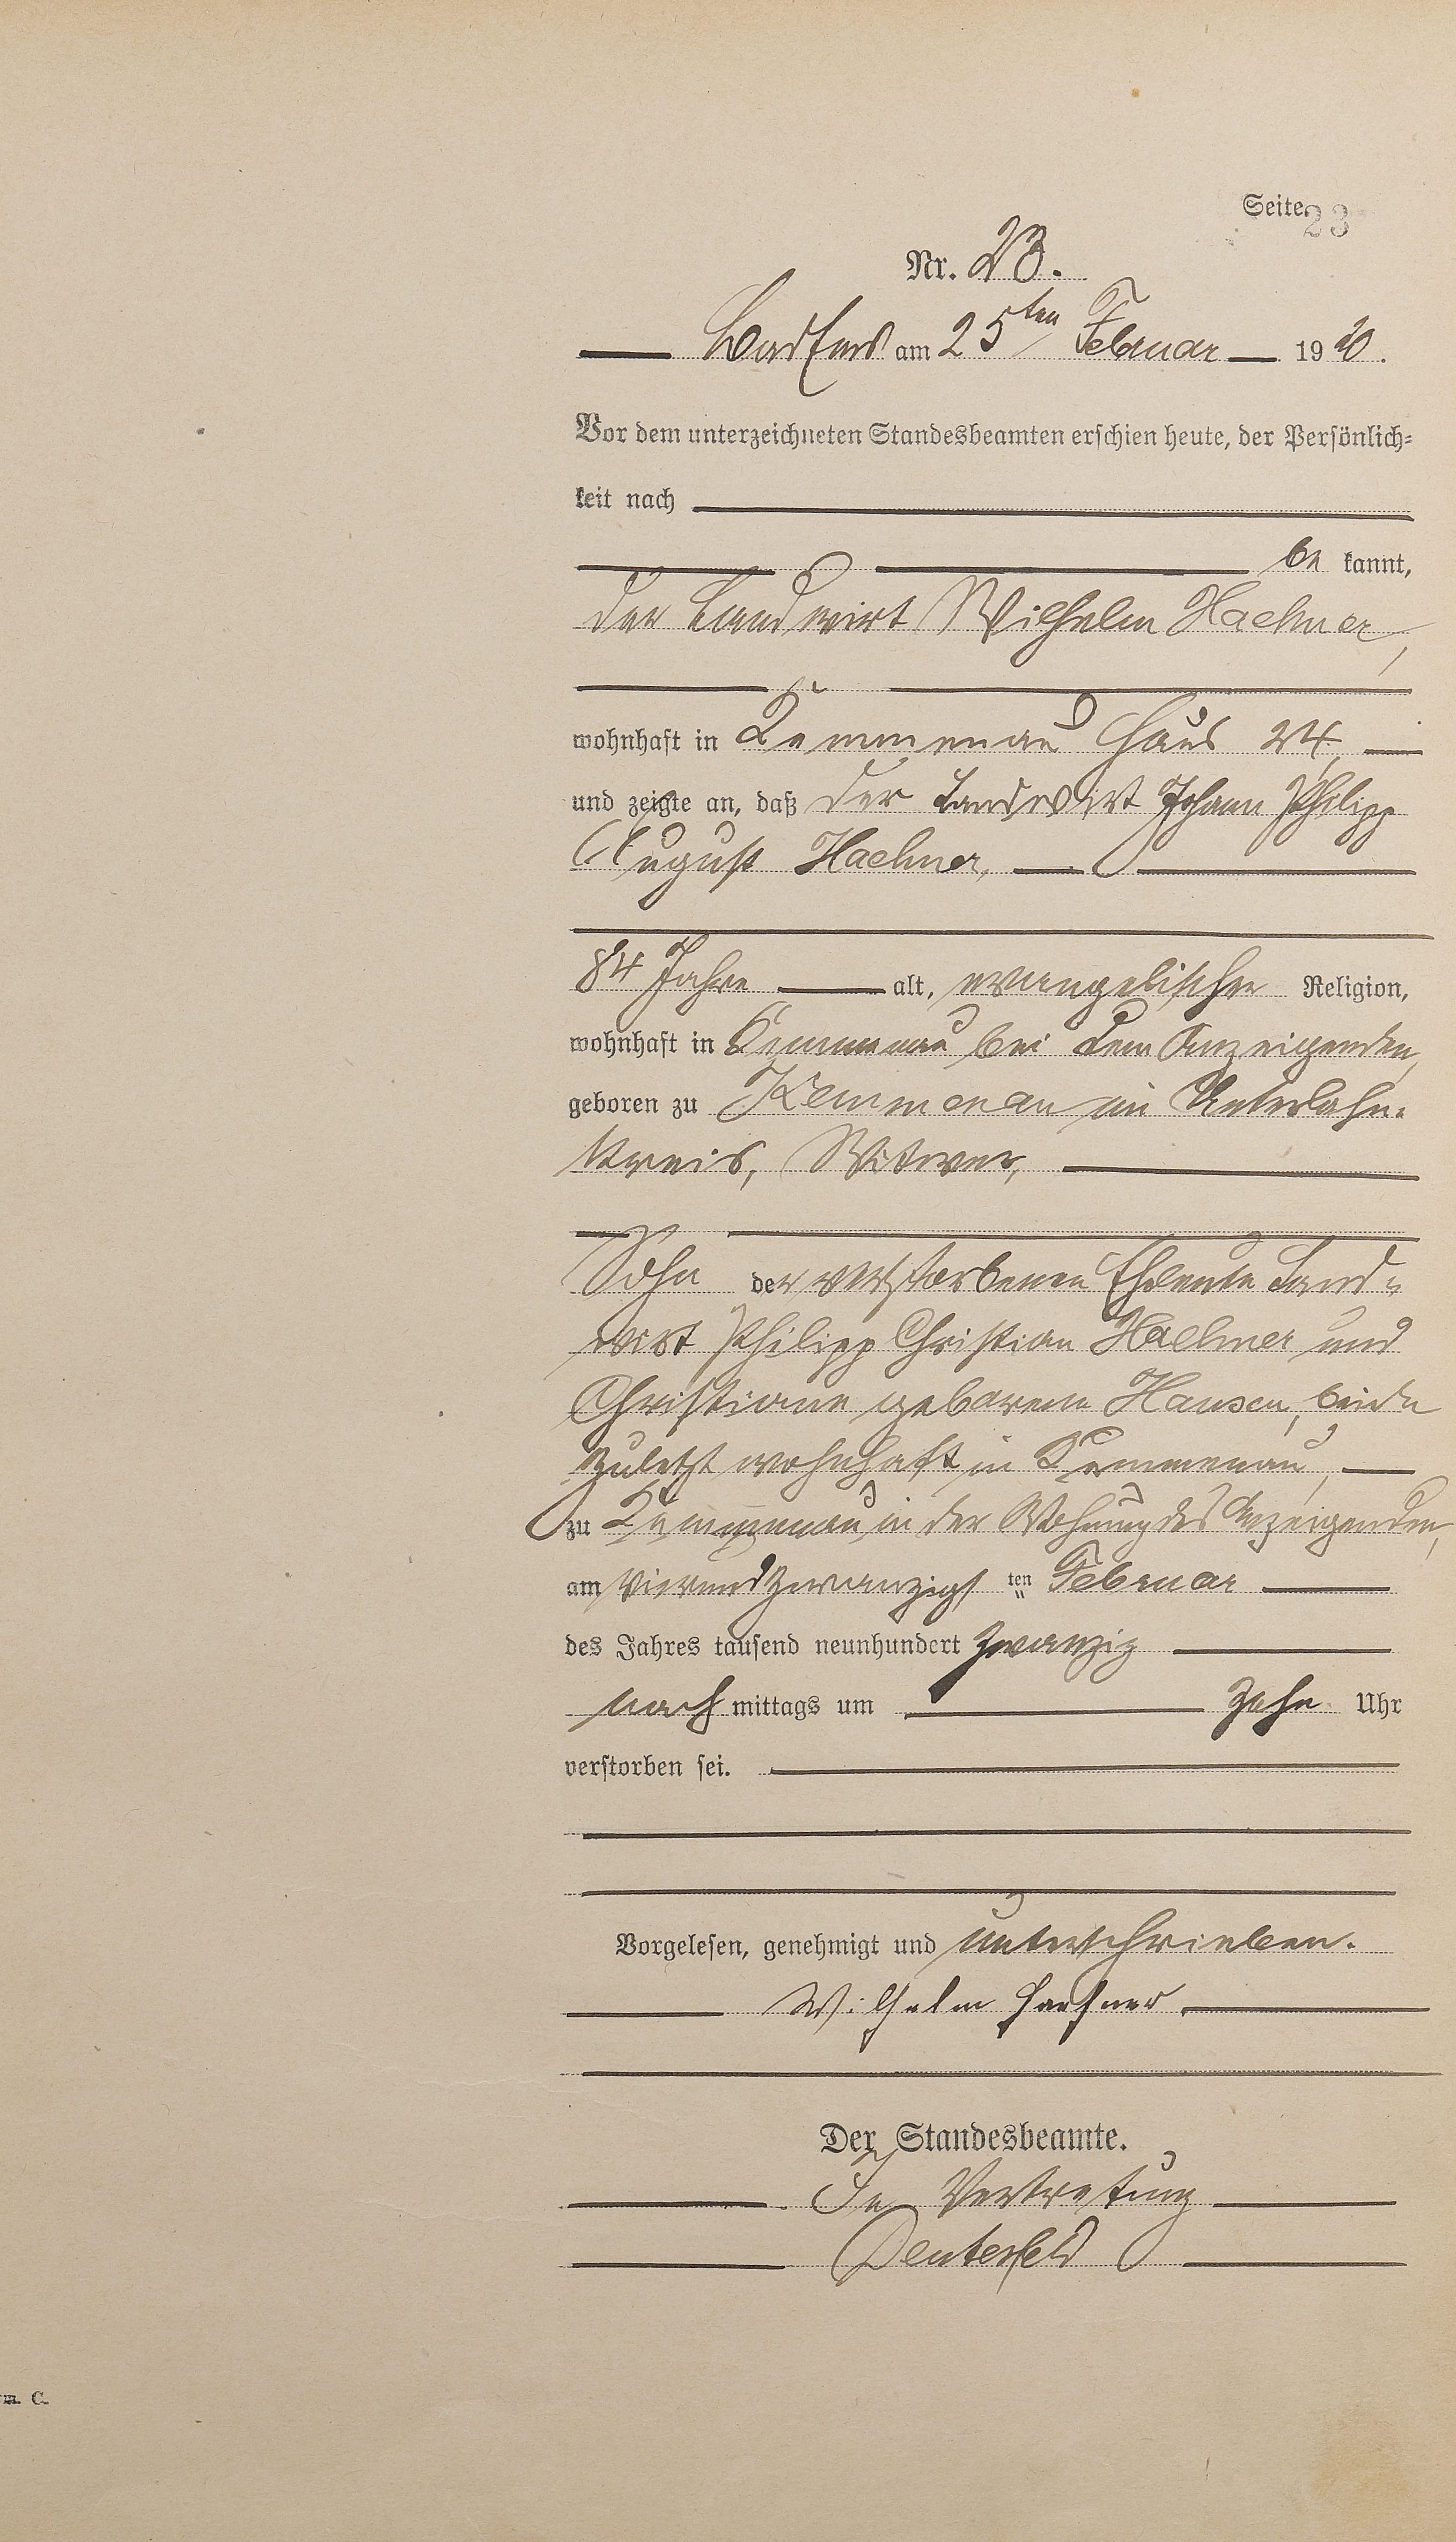 Seite 23
Nr. 23.
Bad Ems am 25ten Februar 1920.
Vor dem unterzeichneten Standesbeamten erschien heute, der Persönlich-
keit nach
be kannt,
der Landwirt Wilhelm Hachner,
wohnhaft in Kemmenau Haus 24,
und zeigte an, daß der Landwirt Johann Philipp
August Hachner,
84 Jahre alt, evangelischer Religion,
wohnhaft in Kemmenau bei dem Anzeigenden,
geboren zu Kemmenau im Unterlahn-
kreis, Witwer,
Sohn der verstorbenen Eheleute Land-
wirt Philipp Christian Hachner und
Christiane geborene Hansen, beide
zuletzt wohnhaft in Kemmenau,
zu Kemmenau in der Wohnung des Anzeigenden,
am vierundzwanzigsten Februar
des Jahres tausend neunhundert zwanzig
nach mittags um zehn Uhr
verstorben sei.
Vorgelesen, genehmigt und unterschrieben.
Wilhelm Hachner
Der Standesbeamte.
In Vertretung
m. C.